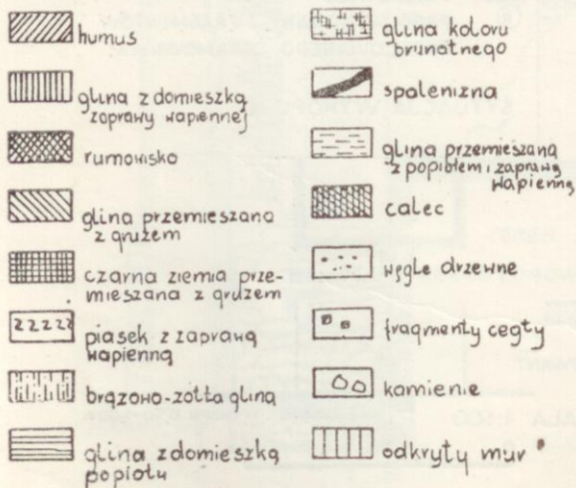 humus
glina z domieszką
zaprawy wapiennej
rumowisko
glina przemieszana
z gruzem
czarna ziemia prze-
mieszana z gruzem
piasek z zaprawą
wapienną
brązowo-żółta glina
glina z domieszką
popiołu
glina koloru
brunatnego
spalenizna
glina przemieszana
z popiołem i zaprawą
wapienną
calec
węgle drzewne
fragmenty cegły
kamienie
odkryty mur